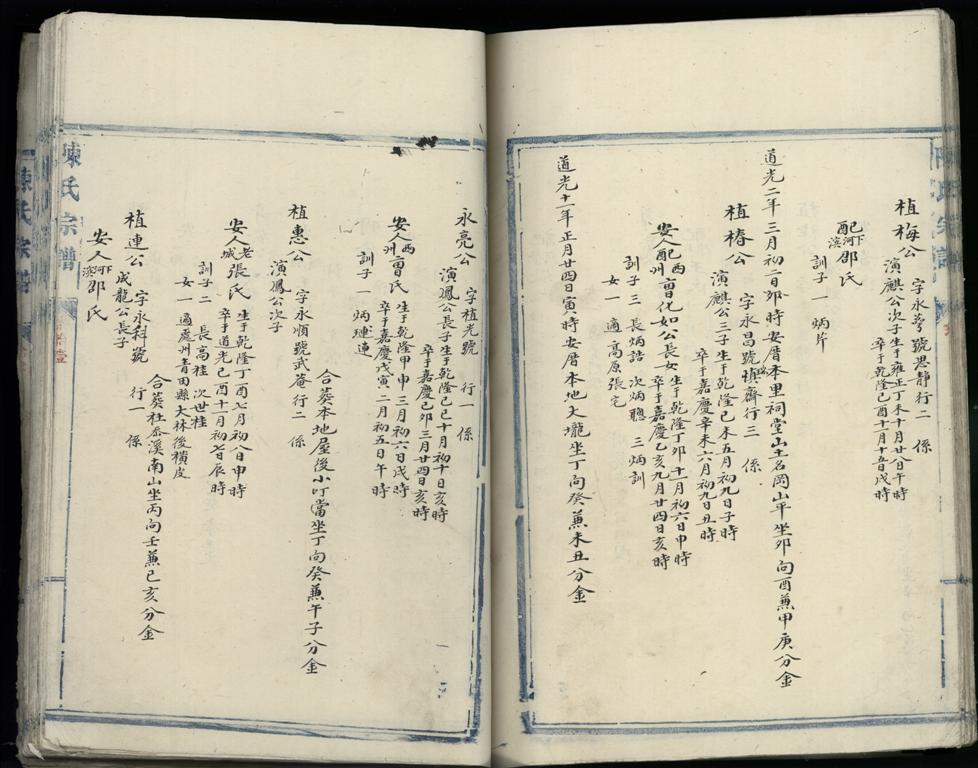 植梅公
字永萼號思靜行二 係
演麒公次子
生于雍正丁未十月廿八日午時
卒于乾隆己酉十月十五日戌時
配河下溪邵氏
訓子一 炳片
道光二年三月初二日卯時安厝本里祠堂山土名岡山平坐卯向酉兼甲庚分金
植椿公
字永昌號填齋行三 係
演麒公三子
生于乾隆己未五月初九日子時
卒于嘉慶辛未六月初九日丑時
安人配西州曹化如公長女
生于乾隆丁卯十一月初六日申時
卒于嘉慶乙亥九月廿四日亥時
訓子三 長炳喆 次炳聰 三炳訓
女一 適高原張宅
道光十一年正月廿四日寅時安厝本地大壠坐丁向癸兼未丑分金
永亮公
字植光號 行一 係
演鳳公長子
生于乾隆己巳十月初十日亥時
卒于嘉慶己卯三月廿四日亥時
安人西州曹氏
生于乾隆甲申三月初六日戌時
卒于嘉慶戊寅二月初五日午時
訓子一 炳璉
植惠公
字永順號武庵行二 係
演鳳公次子
合葵本地屋後小叮當坐丁向癸兼午子分金
安人老城張氏
生于乾隆丁酉七月初八日申時
卒于道光己酉十一月初七日辰時
訓子二 長高桂 次世桂
女一 適處州青田縣大林後橫皮
植連公
字永科號 行一 係
成龍公長子
合葵社岙溪南山坐丙向壬兼巳亥分金
安人河下溪邵氏
陳氏宗譜
陳氏宗譜